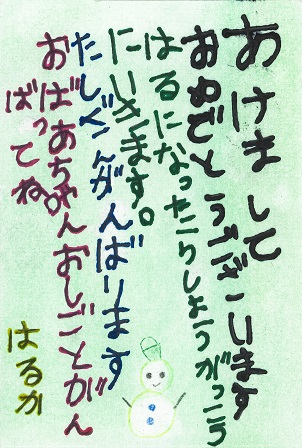 あけまして
おめでとうございます
はるになったらしょうがっこう
にいきます。
たしざんがんばります
おばあちゃんおしごとがん
ばってね
はるか